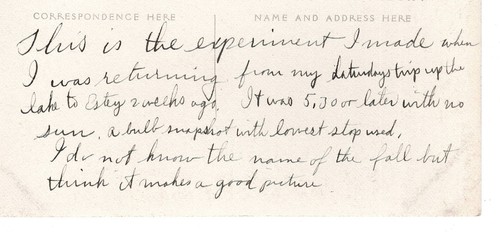 CORRESPONDENCE HERE NAME AND ADDRESS HERE
This is the experiment I made when
I was returning from my Saturdays trip up the
lake to Estey 2 weeks ago. It was 5,30 or later with no
sun. a bulb snapshot with lowest stop used.
I do not know the name of the fall but
think it makes a good picture